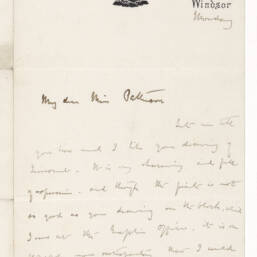 Windsor
Monday
My dear Miss Paterson
Let me tell
you how much I like your drawing of
It is very charming and full
of expression. and though the print is not
as good as your drawing on the block, which
I saw at the Graphic Office, it is on
the more than I could